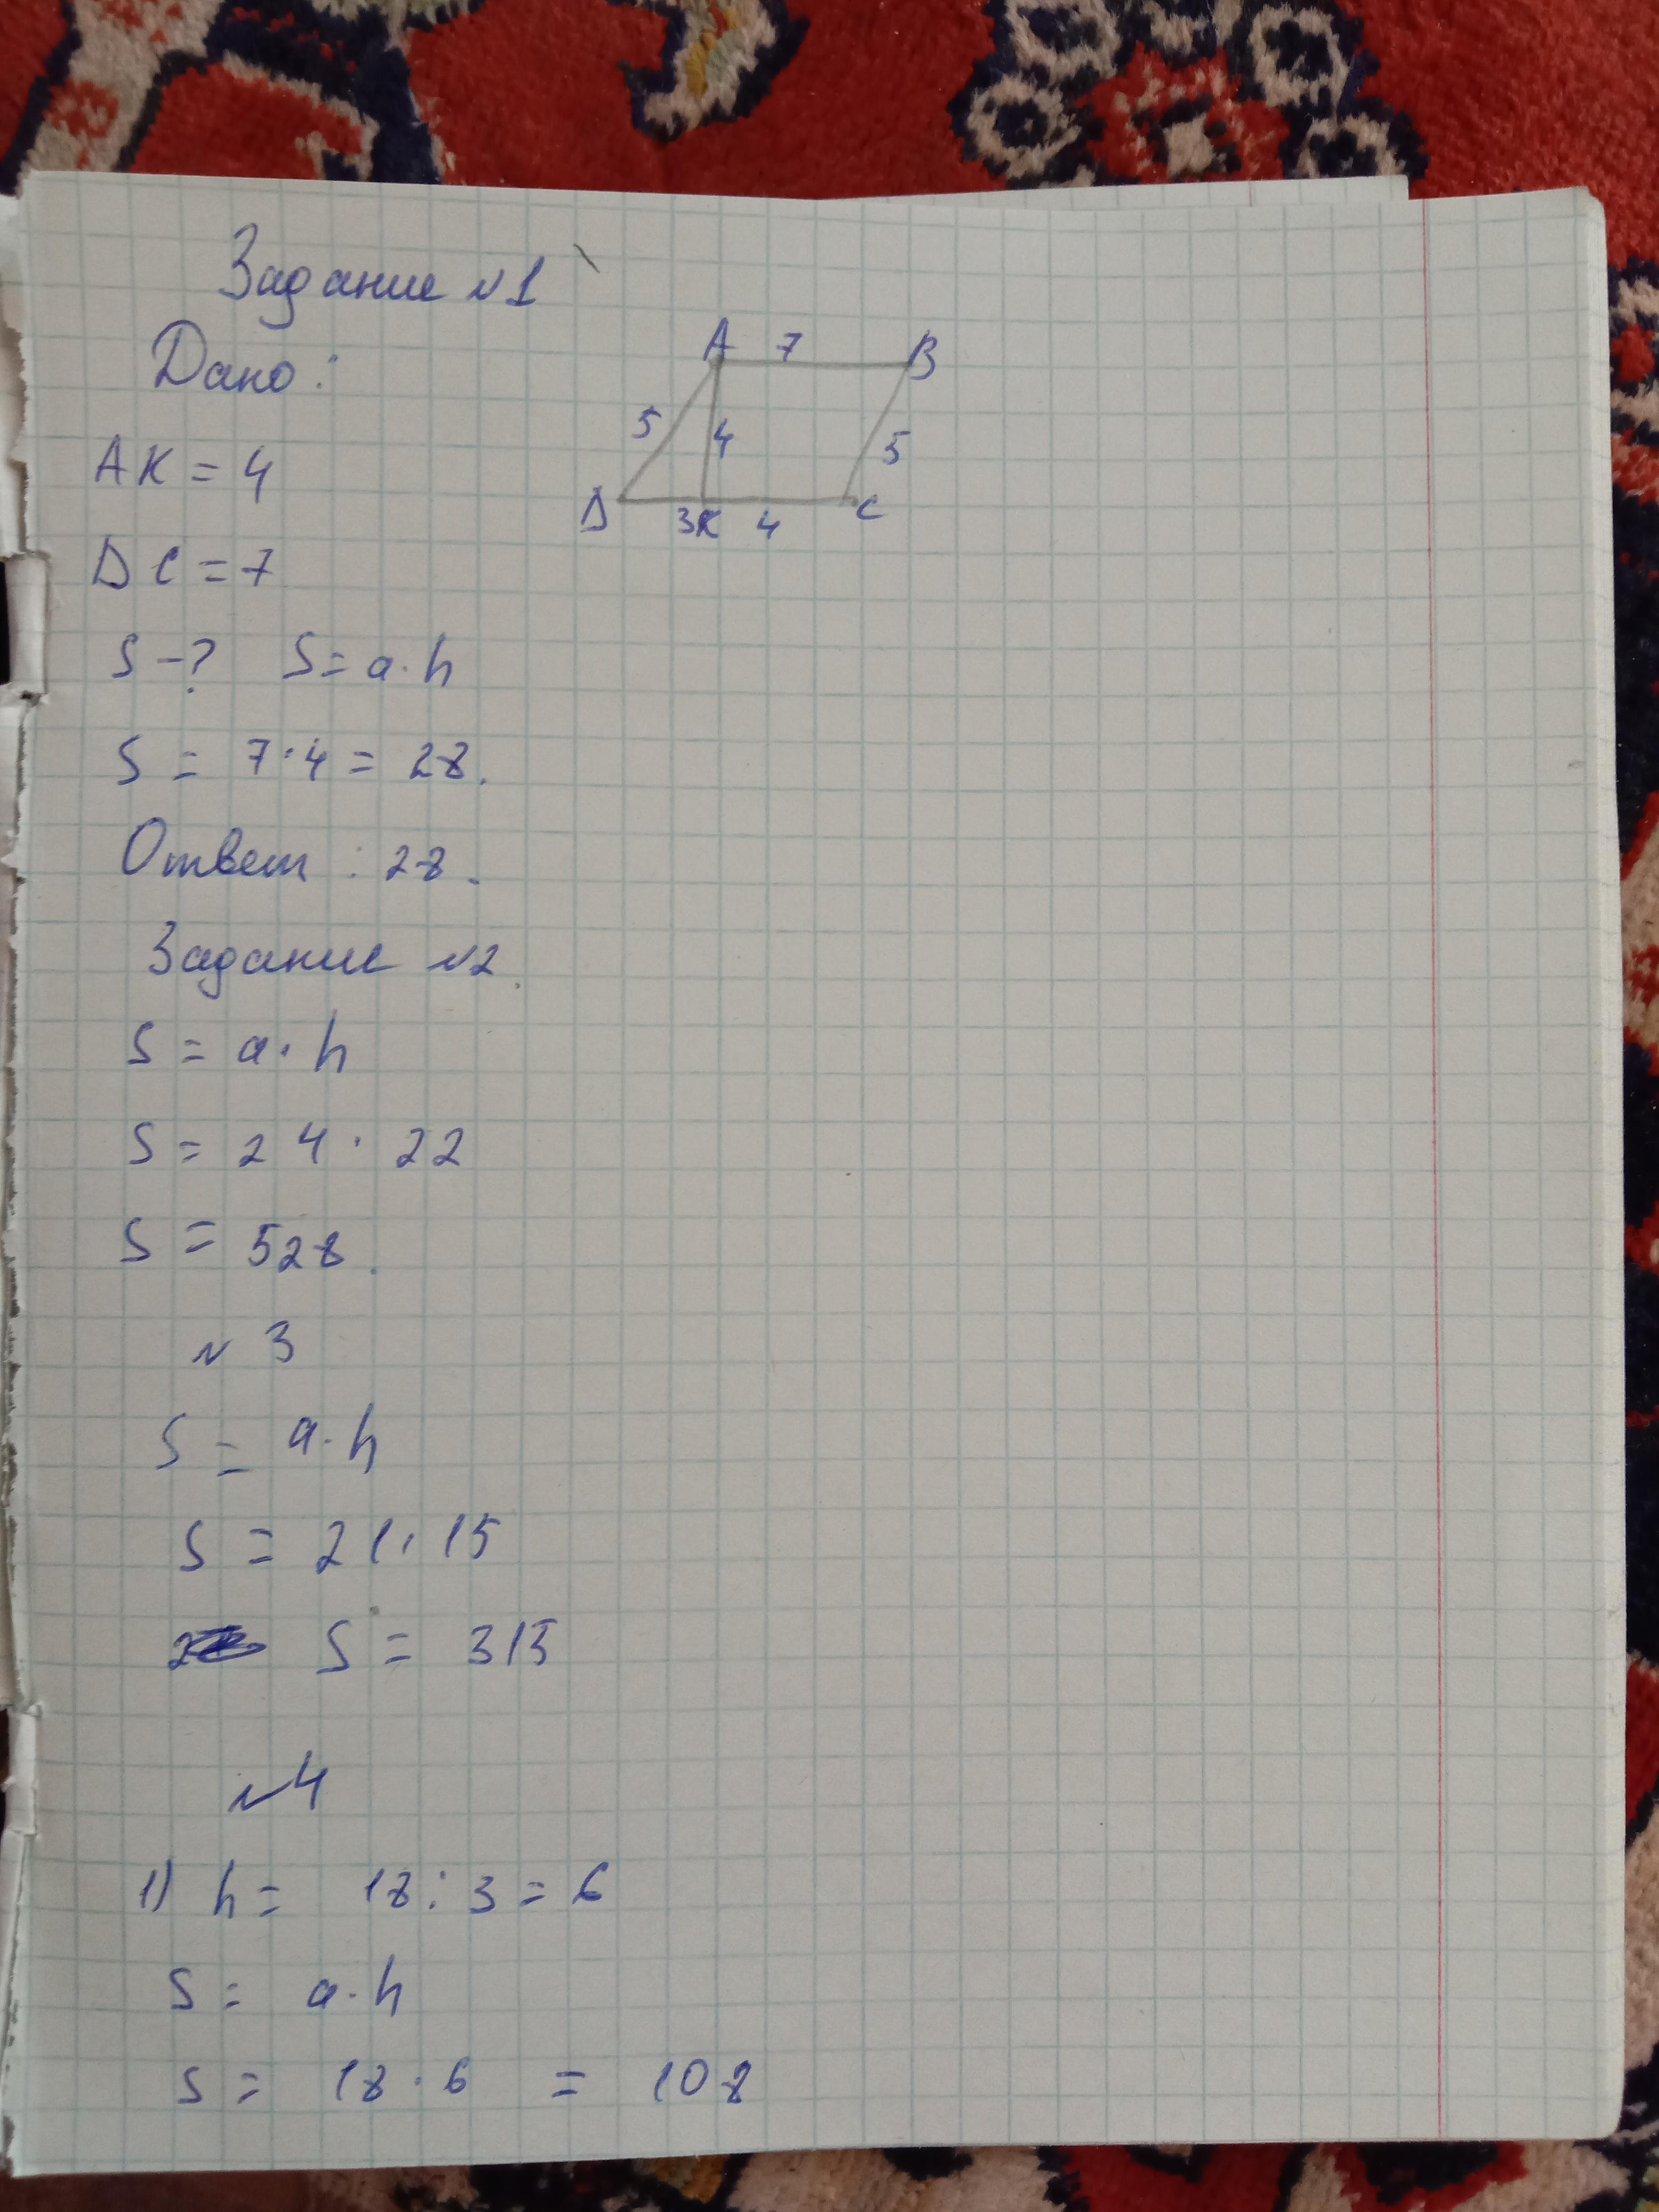 Задание №1
Дано:
A 7 B
5 4 5
D 3 K 4 C
AK = 4
DC = 7
S -? S = a·h
S = 7·4 = 28.
Ответ: 28.
Задание №2
S = a·h
S = 24·22
S = 528.
№3
S = a·h
S = 21·15
S = 315
№4
1) h = 18:3 = 6
S = a·h
S = 18·6 = 108